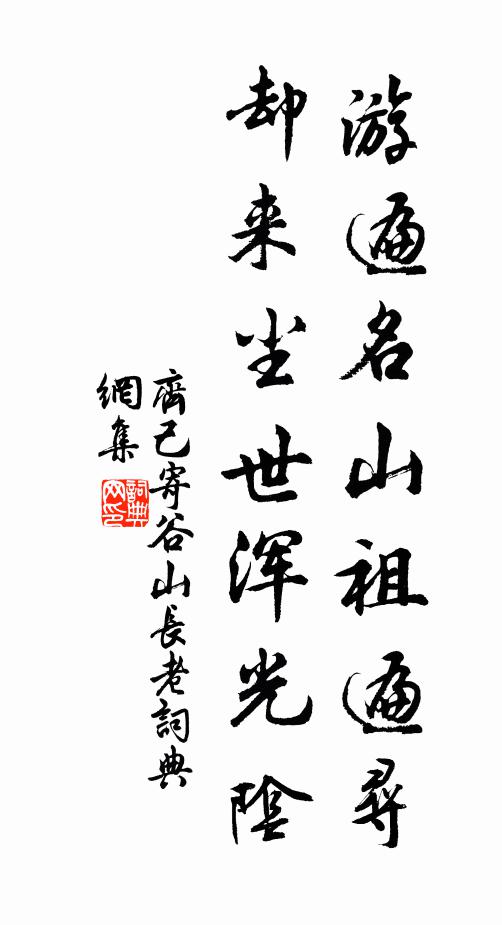 游遍名山祖遍尋
却来尘世浑光陰
齊己寄谷山長老詞典
網集
詞典網印